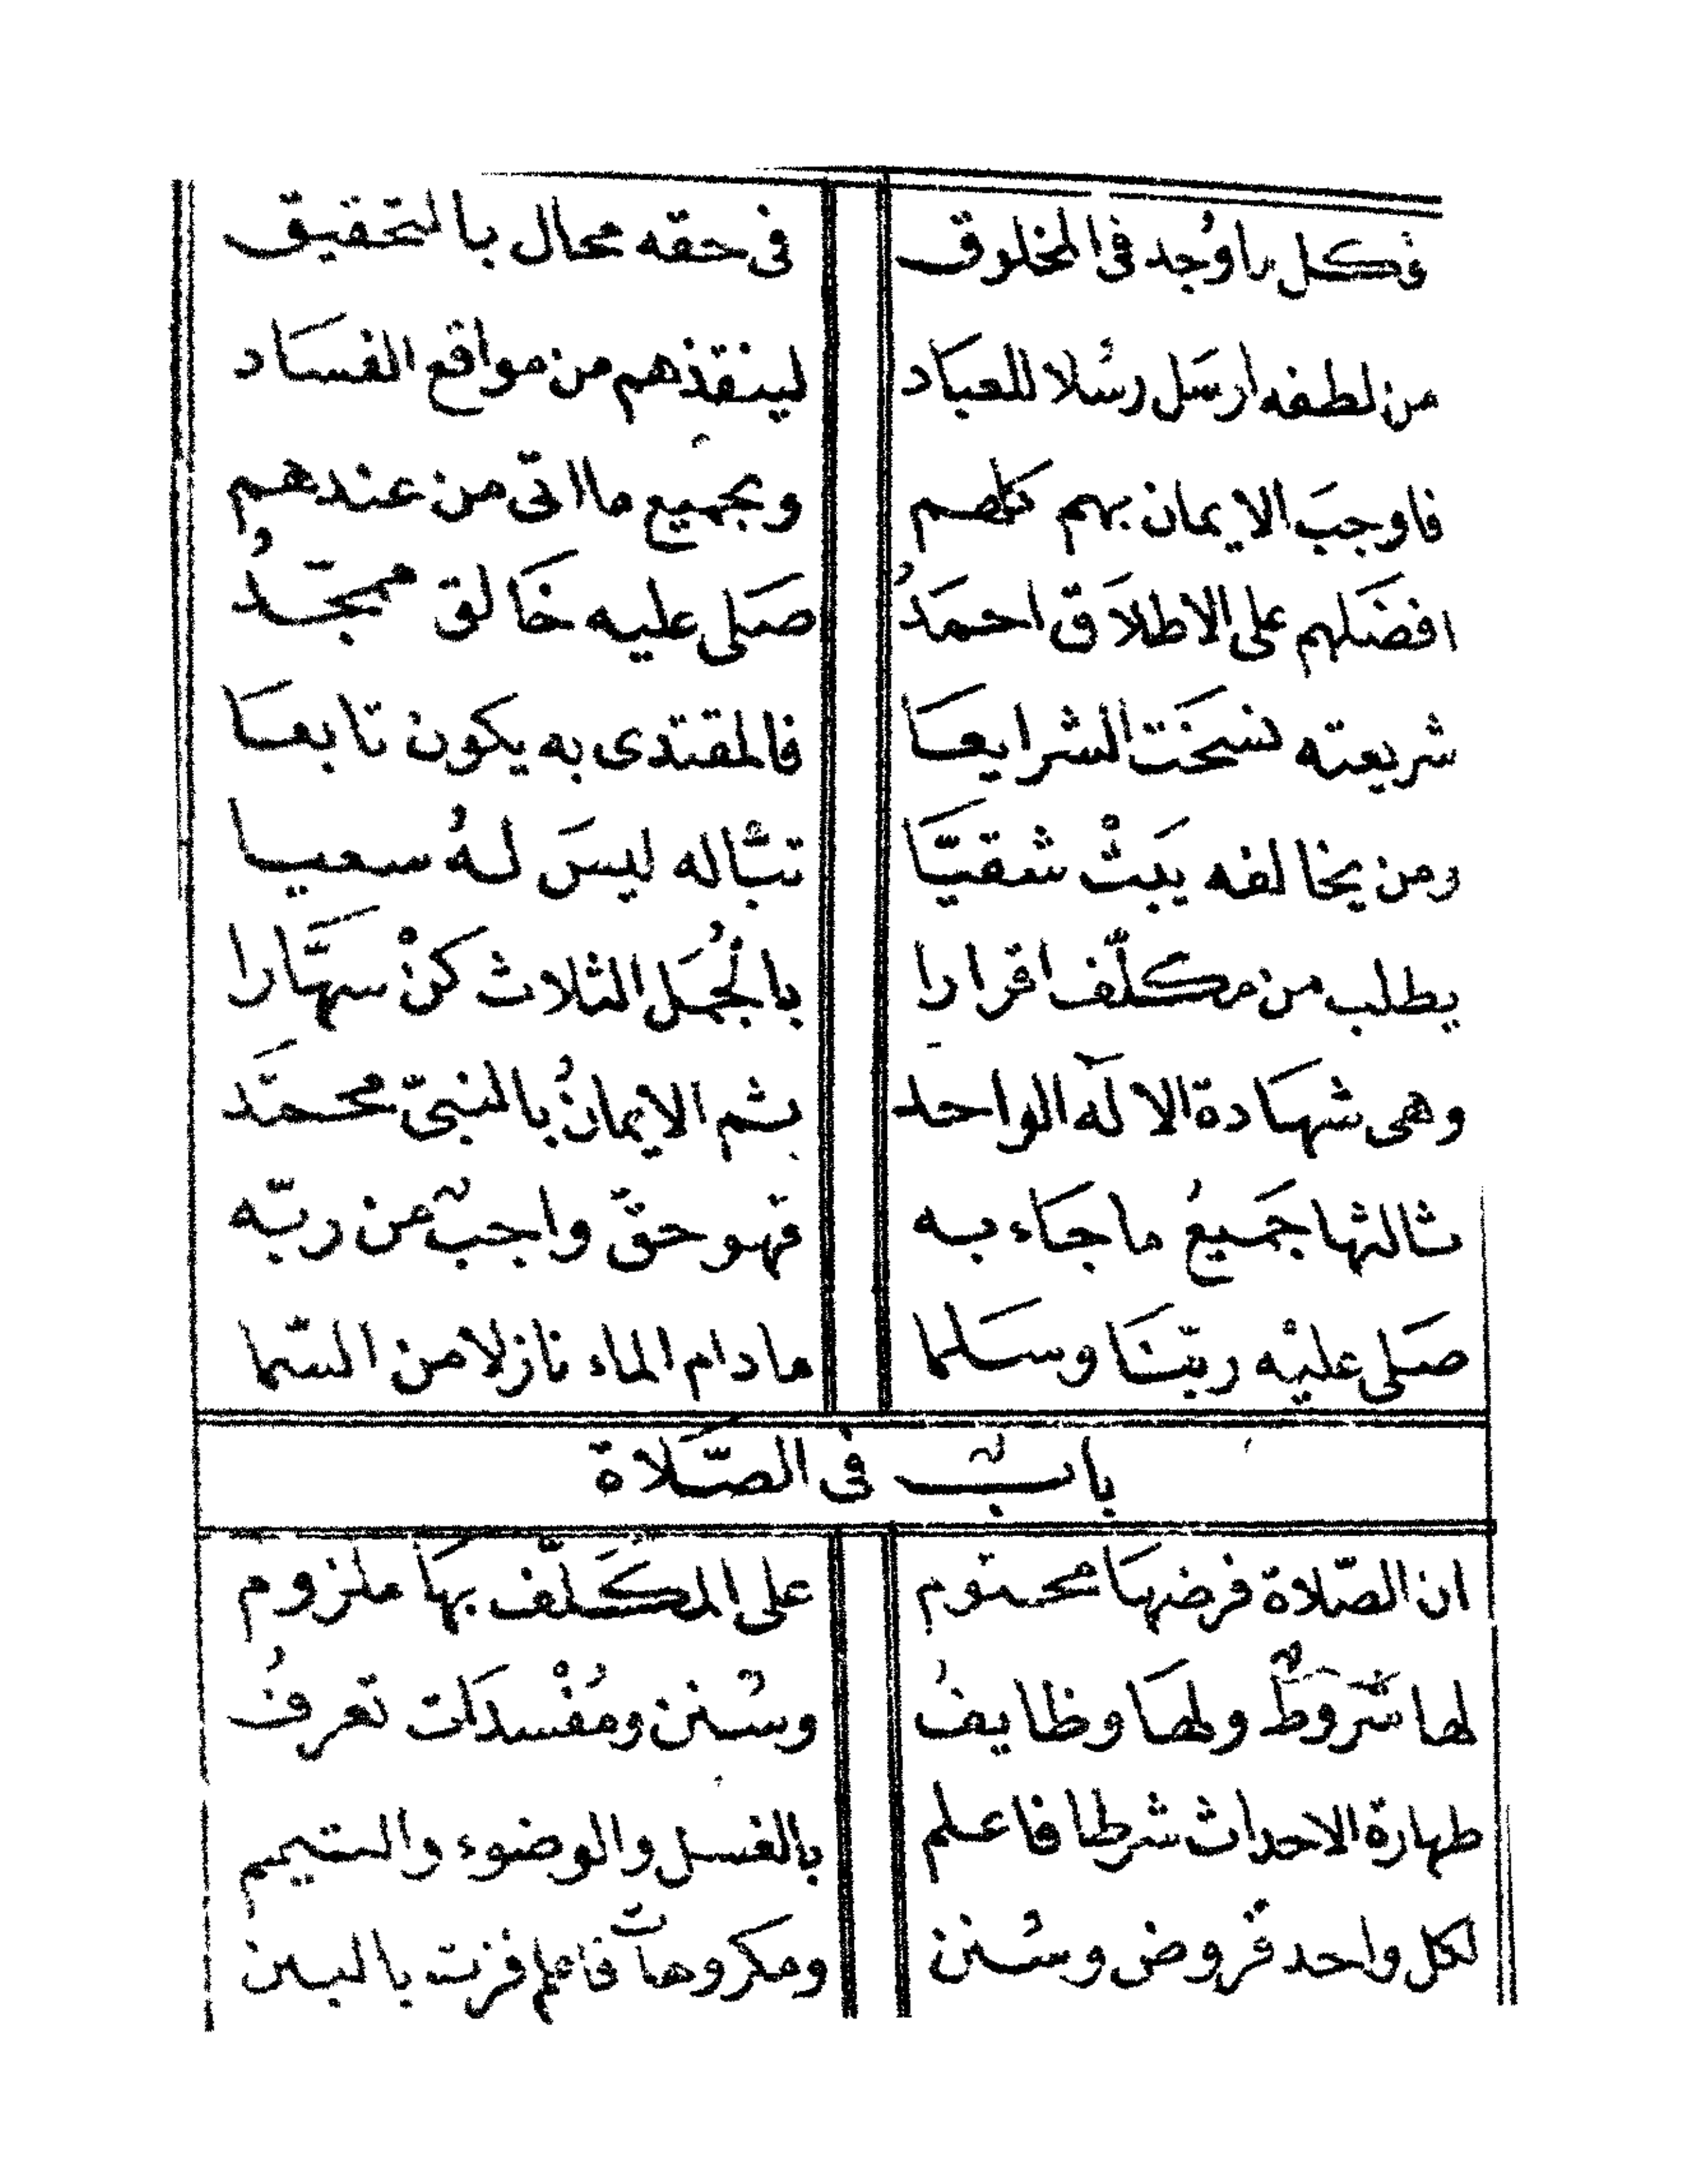 وكل ما وُجد في المخلوق في حقه محال بالتحقيق
من لطفه ارسَل رسُلا للعبَاد لينقذهم من مواقع الفسَاد
فاوجبَ الايمان بهم كلهم وبجميع ما اتى من عندهم
افضَلهم على الاطلاَق احمَدُ صَلى عليه خَالق ممجّدُ
شريعته نسَخَت الشرايعَا فالمقتدى به يكون تابعَا
ومن يخالفه يَبتْ شقيَّا تبًّا له ليسَ لهُ سعيا
يطلب من مكلَّف اقرارا بالْجُمَل الثلاث كنْ سهَّارا
وهى شهَادة الالَه الواحد ثم الايمانُ بالنبىّ محمَّد
ثالثها جَميعُ ما جَاء به فهو حقّ واجبٌ من ربّه
صَلى عليْه ربّنَا وسَلما ما دام الماء نازلا من السّما
بابٌ في الصَّلاة
ان الصّلاة فرضهَا محتوم على المكَلَّف بهَا ملزوم
لها شَروطٌ ولهَا وظايفُ وسُنن ومُفْسدَات تعرفُ
طهارة الاحداث شرطا فاعلم بالغسل والوضوء والتيمم
لكل واحد فروض وسُنن ومكروهاتٌ فاعلم فزت بالمنن